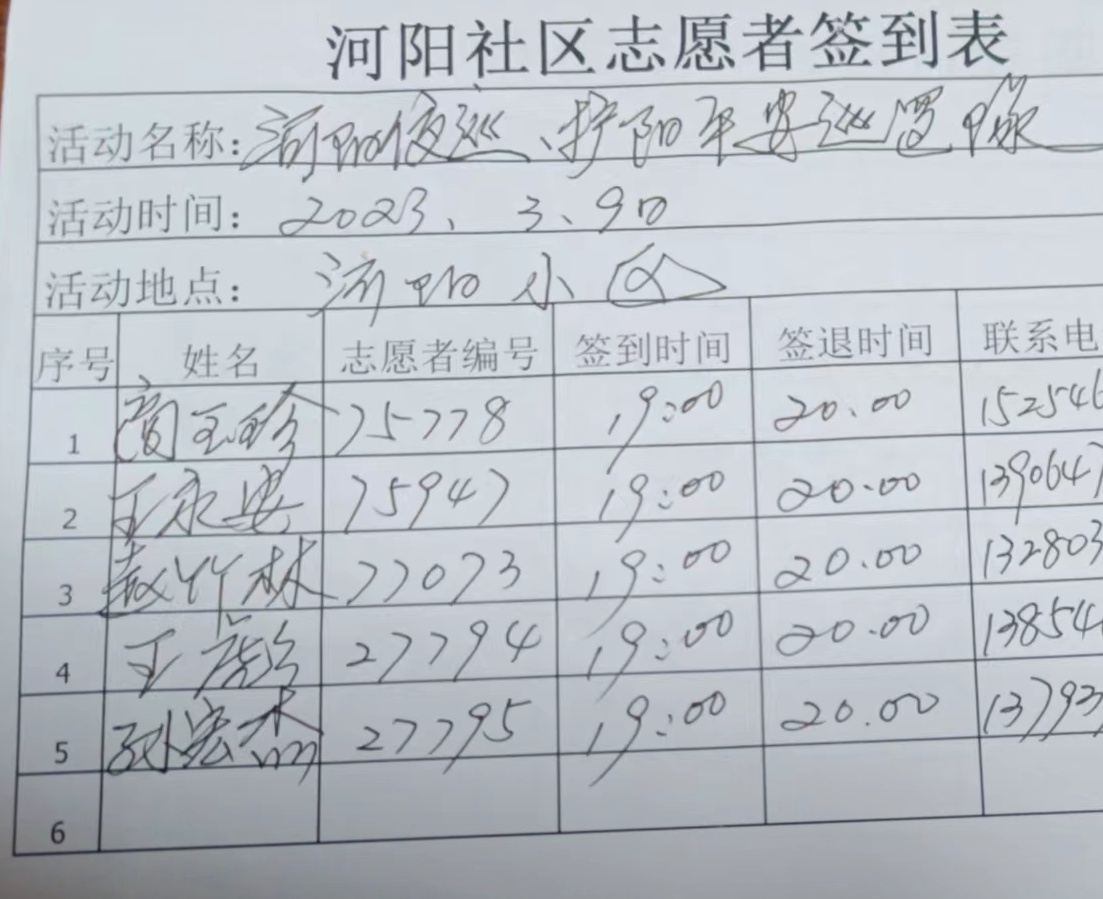 河阳社区志愿者签到表
活动名称：河阳夜巡、护阳平安巡逻队
活动时间：2023、3、9日
活动地点：河阳小区
序号 姓名 志愿者编号 签到时间 签退时间 联系电
1 玉珍 75778 19:00 20.00 152546
2 王永安 75947 19:00 20.00 1390647
3 赵竹林 77073 19:00 20.00 132803
4 王 27794 19:00 20.00 13854
5 孙宏杰 27795 19:00 20.00 13793
6